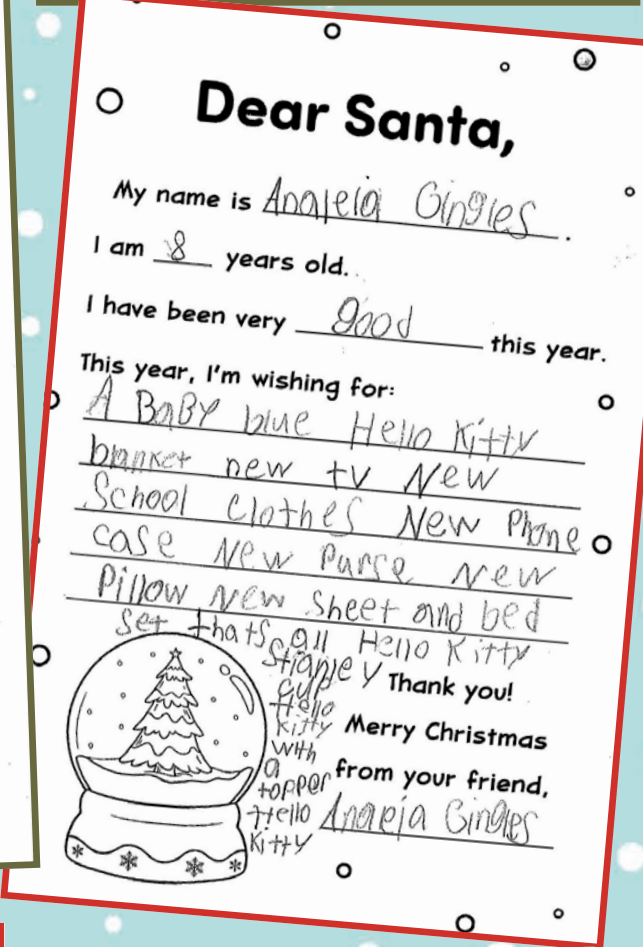 Dear Santa,
My name is Analeia Gingles.
I am 8 years old.
I have been very good this year.
This year, I'm wishing for:
A BaBY blue Hello Kitty
blanket new tv New
School Clothes New Phone
case New Purse New
Pillow New Sheet and bed
Set thats all Hello Kitty
Stanley
cup
Hello
Kitty
with
a
topper
Hello
Kitty
Thank you!
Merry Christmas
from your friend,
Gingles